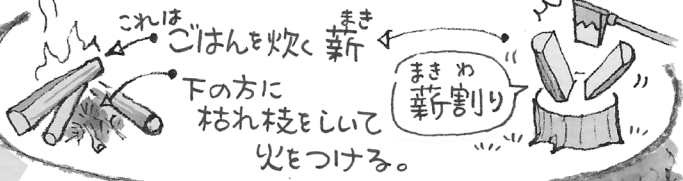 これは
ごはんを炊く薪
まき
下の方に
枯れ枝をしいて
火をつける。
まきわ
薪割り